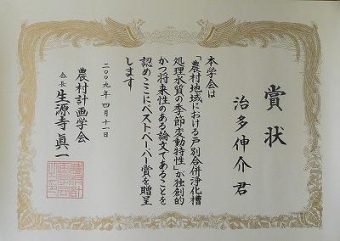 賞状
治多伸介君
本学会は
「農村地域における戸別合併浄化槽
処理水質の季節変動特性」が独創的
かつ将来性のある論文であることを
認めここにベストペーパー賞を贈呈
します
二〇〇九年四月十一日
農村計画学会
会長 生源寺眞一